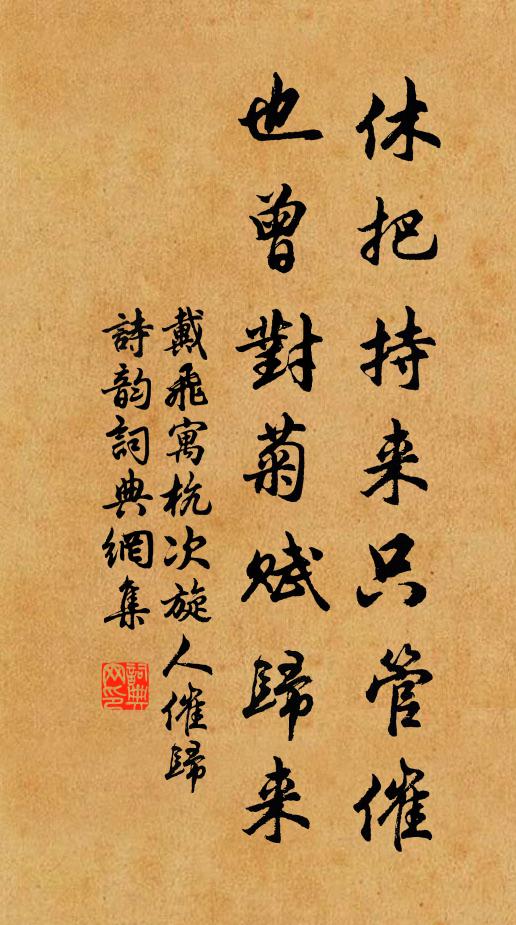 休把持来只管催
也曾對菊赋歸来
戴飛寓杭次旋人催歸
詩韵詞典網集
詞典网印